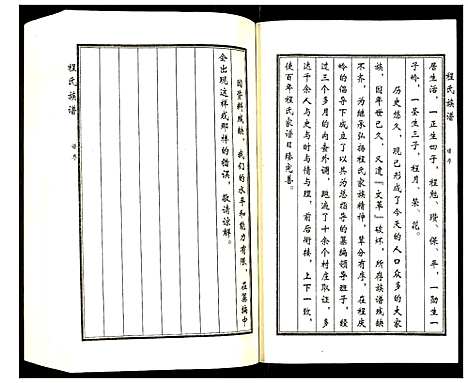 程氏族谱
谱序
居生活，一正生四子，程勉、瓒、保、平，一勋生一
子岭，一荃生三子，程月、荣、花。
历史悠久，现已形成了今天的人口众多的大家
族，因年世已久，又遭『文革』破坏，所存族谱残缺
不齐，为继承弘扬程氏家族精神，辈分有序，在程虎
岭的倡导下成立了以其为总指导的纂编领导班子，经
过三个多月的内查外调，跑遍了十余个村庄取证，多
达千余人与史与时与情与理，前后衔接，上下一致，
使百年程氏家谱日臻完善。
因资料残缺，我们的水平和能力有限，在纂编中
会出现这样或那样的错误，敬请谅解。
程氏族谱
谱序